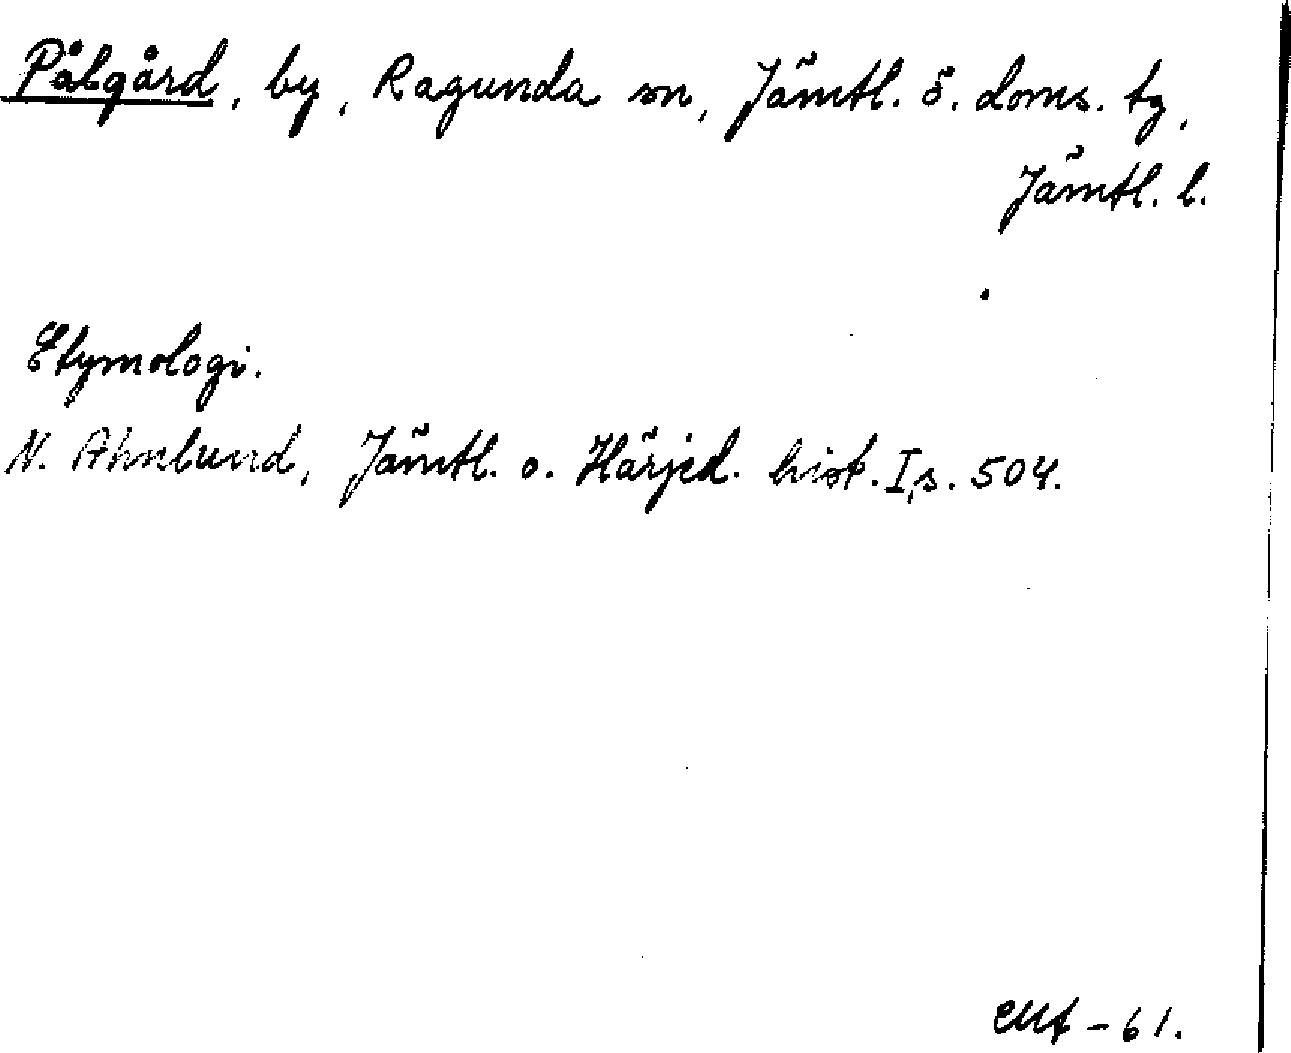 Pålgård, by, Ragunda sn, Jämtl. ö. doms. tg,
Jämtl. l.
Etymologi.
N. Ahnlund, Jämtl. o. Härjed. hist. I, s. 504.
-61.